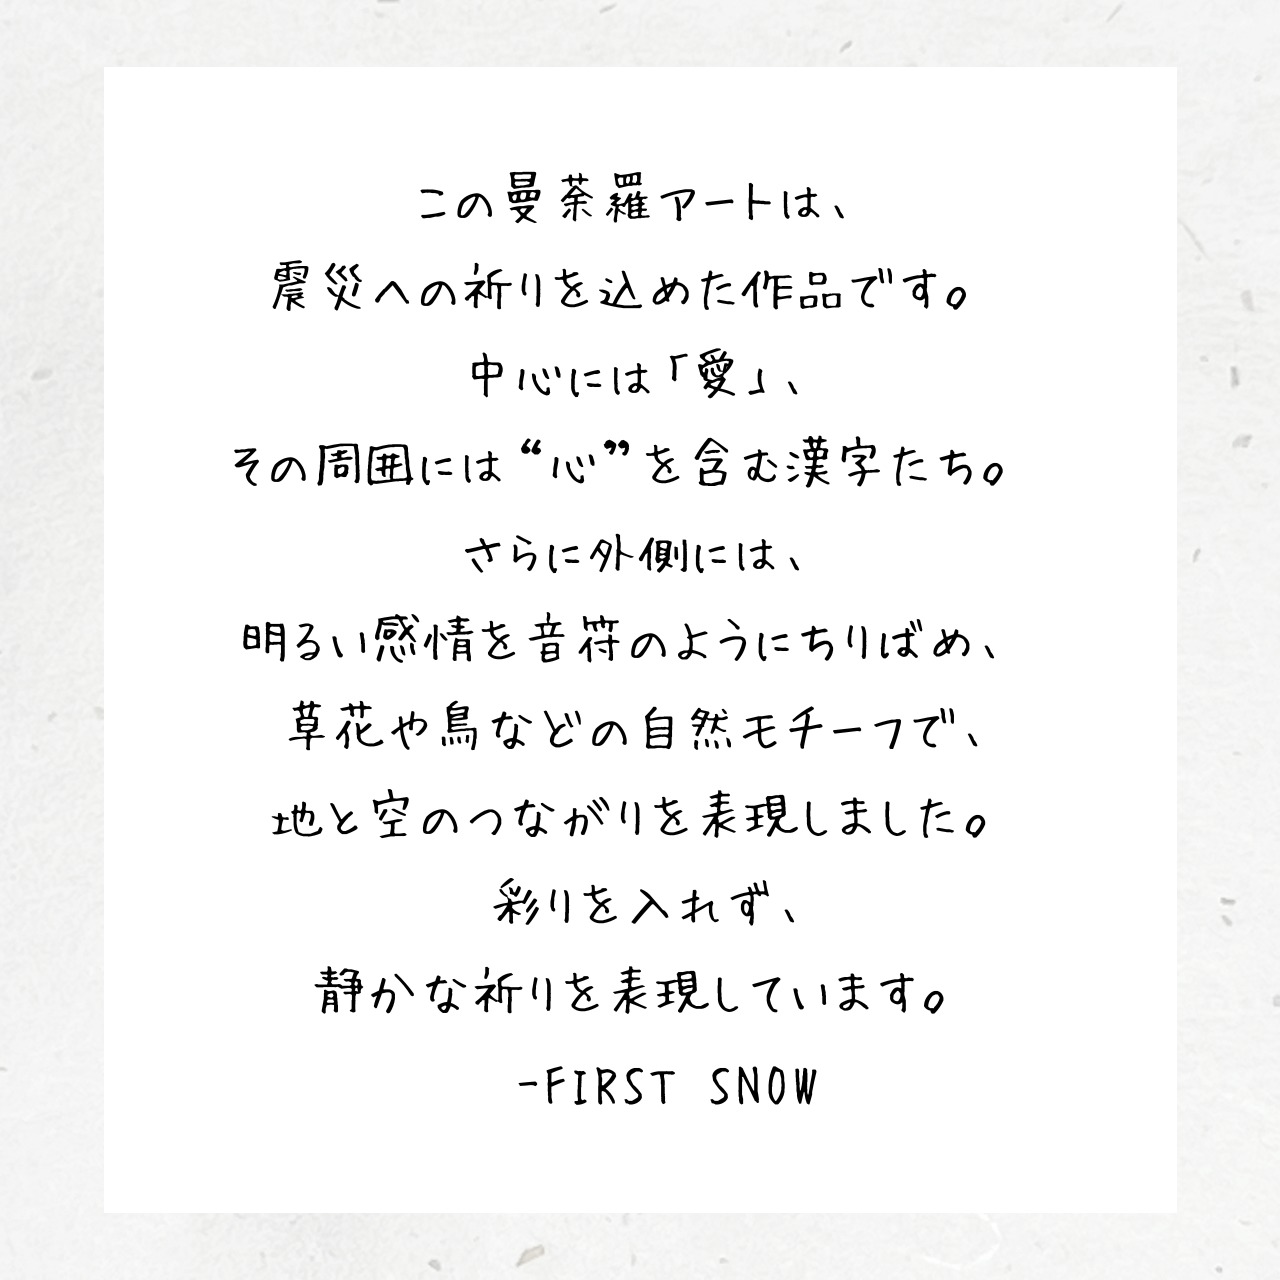 この曼荼羅アートは、
震災への祈りを込めた作品です。
中心には「愛」、
その周囲には“心”を含む漢字たち。
さらに外側には、
明るい感情を音符のようにちりばめ、
草花や鳥などの自然モチーフで、
地と空のつながりを表現しました。
彩りを入れず、
静かな祈りを表現しています。
-FIRST SNOW